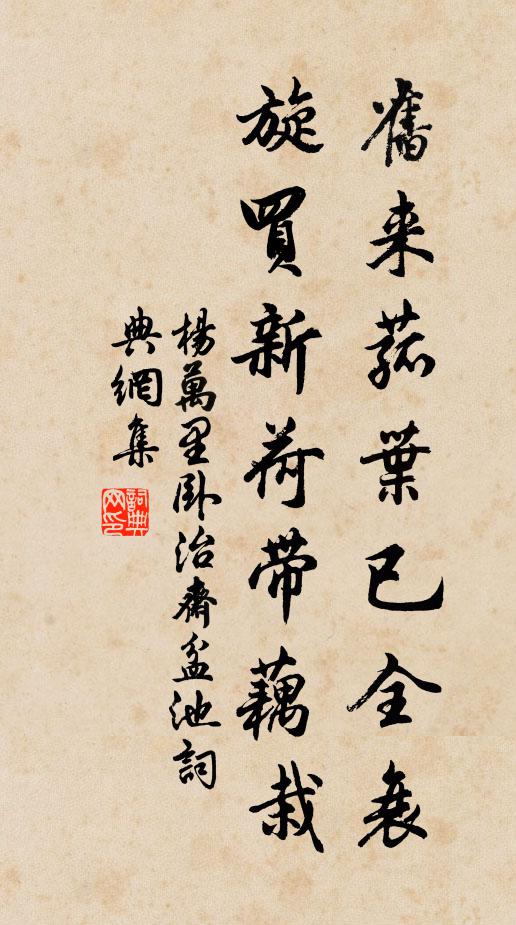 舊来菰葉已全衰
旋買新荷帶藕栽
楊萬里臥治齋盆池詞
典網集
詞典網印